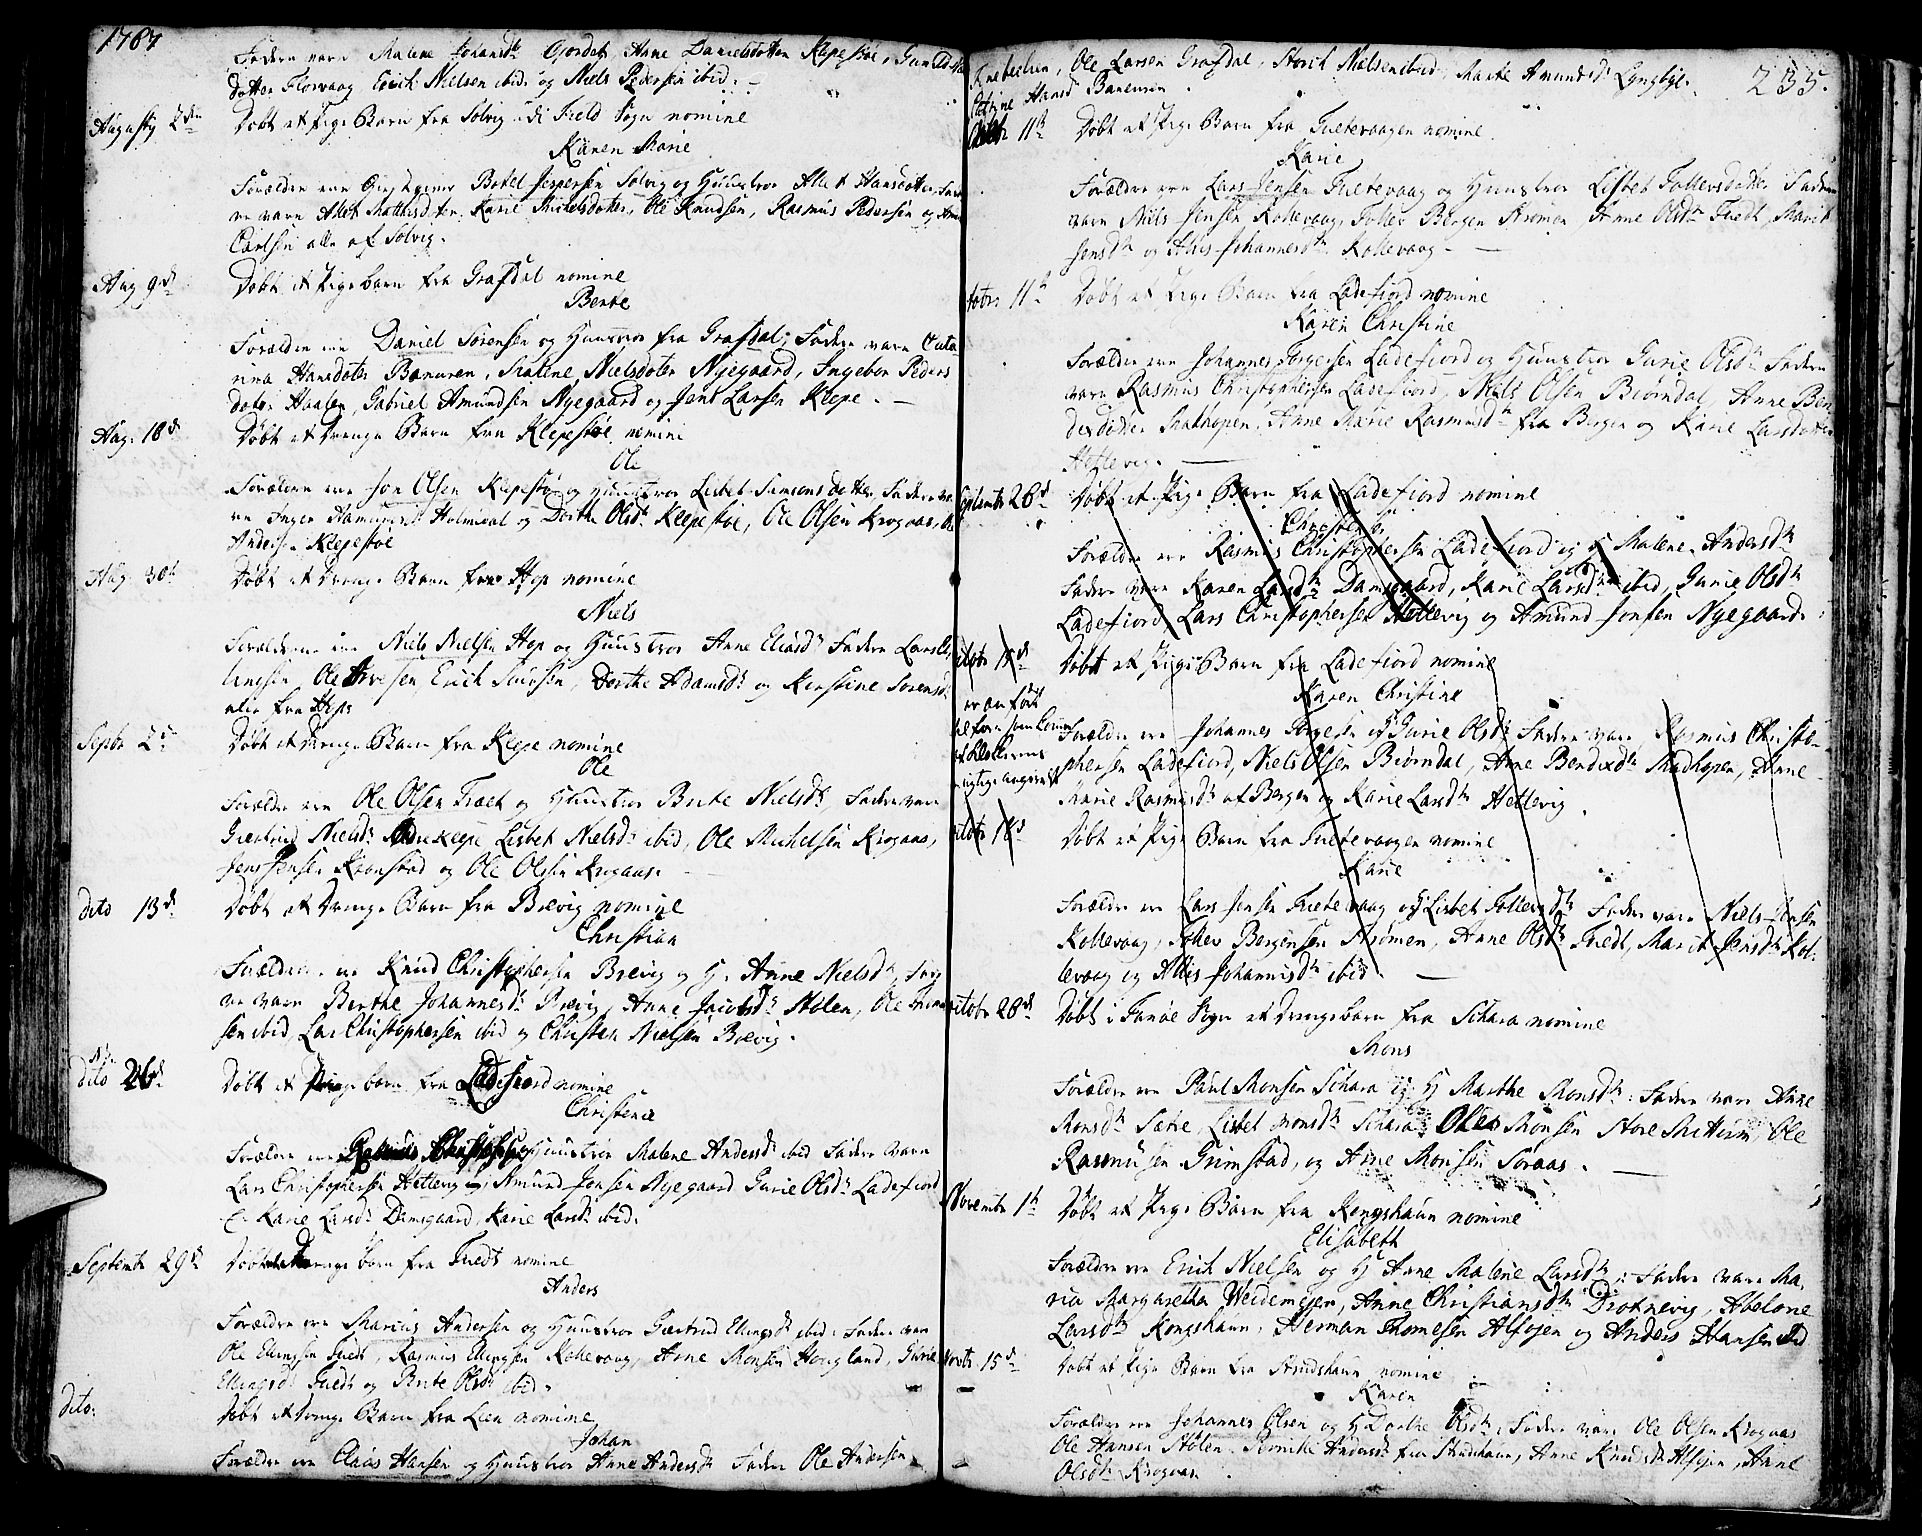 1787
Faddere vare Malene Johansdtr Gjordet, Anne Danielsdotter Klepestøe, Gunild
dotter Florvaag Erich Nielsen ibid. og Niels Pedersen ibid. —
Augusty 2den Døbt et Pige Barn fra Solvig udi Field Sogn nomine
Karen Marie
Forældre ere Botel Jespersen Solvig og Huustroe Alet Hansdotter, Fadde
re vare Alet Matthisdtter, Karie Michelsdotter, Ole Knudsen, Rasmus Pedersen og
Carlsen alle af Solvig.
Aug 9de Døbt et Pige barn fra Grafdal nomine
Bente
Forældre ere Daniel Sørensen og Huustroe fra Grafdal; Faddere vare Cata
rina Hansdoter Baneren, Malene Nielsdoter Nyegaard, Ingebor Peders
doter Haalen, Gabriel Amundsen Nyegaard og Jens Larsen Klepe. —
Aug. 18de Døbt et Drenge Barn fra Klepestøe nomine
Ole
Forældrene ere Jon Olsen Klepestø og Huustroe Lisbet Simonsdotter, Faddere va
re Inger Holmedal og Dorthe Olsdr Klepestøe, Ole Olsen Krogaas,
Anders. Klepestøe
Aug. 30te Døbt et Drenge Barn fra Hop nomine
Niels
Forældrene ere Niels Nielsen Hop og Huustroe Anne Eliasdr Faddere Lars
Ole Iversen Erich Dorthe Adamsdr og Kirstine Sørensdr
alle fra Hop
Septbr 2de Døbt et Drenge Barn fra Klepe nomine
Ole
Forældre ere Ole Olsen Træet og Huustroe Brite Nielsdr, Faddere vare
Giertrud Nielsdr Indre Klepe Lisbet Nielsdr ibid, Ole Michelsen Krogaas,
Jens Jensen og Ole Olsen Krogaas.
dito 13de Døbt et Drenge Barn fra Brevig nomine
Christian
Forældrene ere Knud Christophersen Brevig og H. Anne Nielsdr, Fad
re vare Berthe Johannesdr Brevig, Anne Jacobsdr Stølen, Ole
sen ibid, Lars Christophersen ibid og Christen Nielsen Brevig.
dito 26de Døbt et Pige barn fra Ladefiord nomine
Christence
Forældre ere Rasmus Christophersen Huustroe Malene Andersdr ibid Faddere vare
Lars Christophersen Hettevig og Amund Jonsen Nyegaard Gurie Olsdr Ladefiord
Karie Larsdr Damsgaard, Karie Larsdr ibid.
Septembr 29de Døbt et Drenge barn fra Tuedt nomine
Anders
Forældre ere Marcus Andersen og Huustroe Giertrud Ellingsdr ibid. Faddere vare
Ole Ellingsen Tuedt, Rasmus Ellingsen Kollevaag, Arne Monsen Hougland, Gurie
Ellingsdr Tuedt og Brite Olsdr ibid.
dito. Døbt et Drenge Barn fra Lien nomine
Johan
Forældre ere Claus Hansen og Huustroe Anne Andersdr Faddere Ole Andersen
Ole Larsen Grafdal, Storch Nielsen ibid, Marte Amundsdr Lyngbye. 235.
Hansd Baneren
Octobr 11te Døbt et Pige Barn fra Tuetevaagen nomine
Karie
Forældre ere Lars Jensen Tuetevaag og Huustroe Lisbet Tollevsdotter Faddere
vare Niels Jensen Kollevaag, Tollev Bergen Strømen Anne Olsdr Tuedt, Marit
Jensdr og Alis Johannesdr Kollevaag —
Octobr 11te Døbt et Pige Barn fra Ladefiord nomine
Karen Christine
Forældre ere Johannes Torgersen Ladefiord og Huustroe Gurie Olsdr Faddere
vare Rasmus Christophersen Ladefiord, Niels Olsen Biørndal, Anne Ben
dixdotter Madhopen, Anne Marie Rasmusdr fra Bergen og Karie Larsdotter
Hettevig. —
Septembr 26de Døbt et Pige Barn fra Ladefiord nomine
Forældre ere Rasmus Christophersen Ladefiord og Malene Andersdr
Faddere vare Karen Larsdr Damsgaard, Karie Larsdr ibid, Gurie Olsdr
Ladefiord, Lars Christophersen Hettevig og Amund Jonsen Nyegaard.
Octobr 18de Døbt et Pige Barn fra Ladefiord nomine
Karen Christine
er anført
Forældre ere Johannes Torgersen og Gurie Olsdr Faddere vare Rasmus Christo-
phersen Ladefiord, Niels Olsen Biørndal, Anne Bendixdr Madhopen, Anne
Marie Rasmusdr af Bergen og Karie Larsdr Hettevig.
Octobr 18de Døbt et Pige Barn fra Tuetevaagen nomine
Karie
Forældre ere Lars Jensen Tuetevaag og Lisbet Tollevsdr Faddere vare Niels Jensen
Kollevaag, Tollev Bergensen Strømen, Anne Olsdr Tuedt, Marit Jensdr Kol-
levaag og Allis Johannisdr ibid. —
Octobr 28de Døbt i Fanøe Sogn et Drengebarn fra Schara nomine
Mons
Forældre ere Paul Monsen Schara og H Marthe Monsdr: Faddere vare Anne
Monsdr Sætre, Lisbet Monsdr Schara: Oles Monsen Store Ole
Rasmusen Grimstad, og Arne Monsen Søraas. —
Novembr 1te Døbt et Pige Barn fra Kongshaun nomine
Elisabeth
Forældre ere Erich Nielsen og H Anne Malene Larsdr; Faddere vare Ma-
ria Margaretha Weidemejen, Anne Christiansdr Drotnevig, Abelone
Larsdr Kongshaun, Herman Thomesen Alføjen og Anders Hansen ibid
Novbr. 15de Døbt et Pige Barn fra Strudshaun nomine
Karen
Forældre ere Johannes Olsen og H Dorthe Olsdr; Faddere vare Ole Olsen Krogaas
Ole Hansen Stølen, Andersdr fra Strudshaun, Anne Knudsdr Alføjen, Anne
Olsdr Krogaas